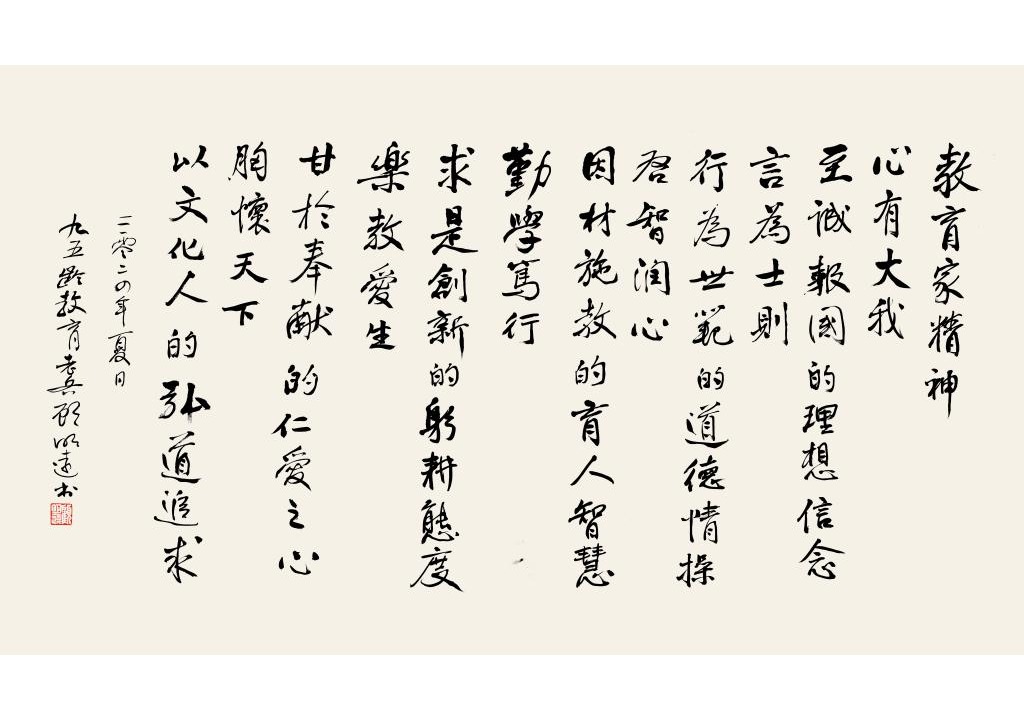 教育家精神
心有大我
至诚報國的理想信念
言為士則
行為世範的道德情操
启智润心
因材施教的育人智慧
勤學篤行
求是創新的躬耕態度
樂教愛生
甘於奉献的仁愛之心
胸懷天下
以文化人的弘道追求
二零二四年夏日
九五齡教育老兵顾明远书